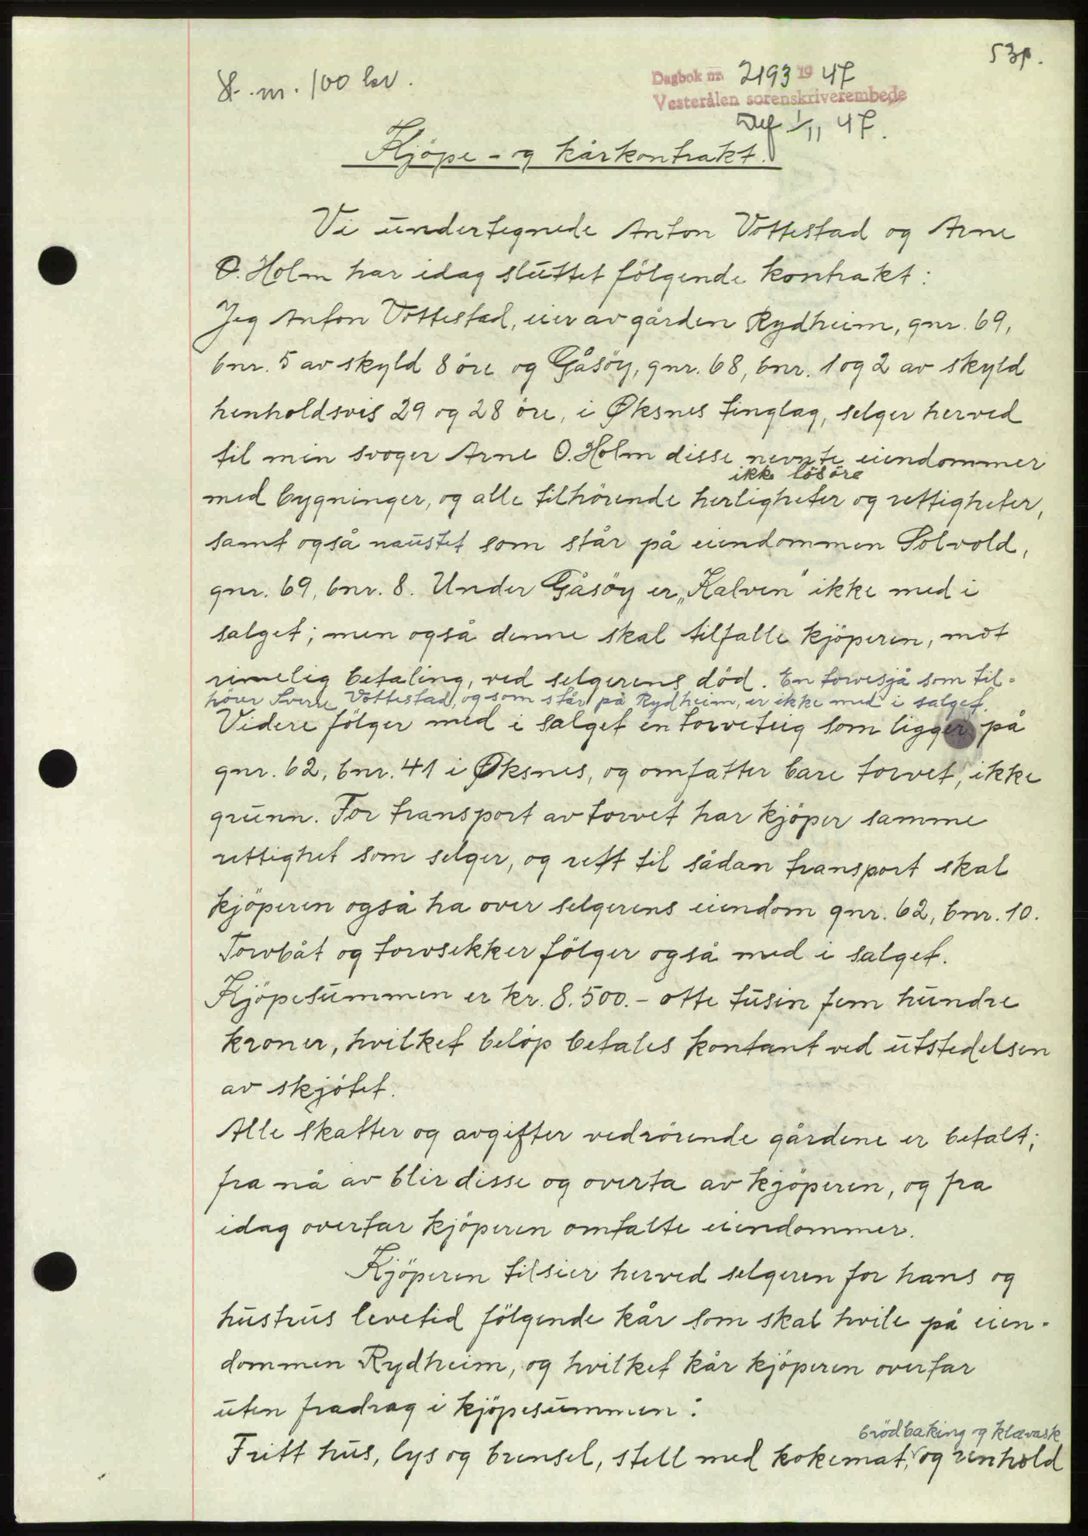 53p.
St. m. 100 kr.
Dagbok nr. 2193 19 47
Vesterålen sorenskriverembede
1/11 47.
Kjöpe- og kårkontrakt.
Vi undertegnede Anton Vottestad og Arne
O. Holm har idag sluttet fölgende kontrakt:
Jeg Anton Vottestad, eier av gården Rydheim, gnr. 69,
bnr. 5 av skyld 8 öre og Gåsöy, gnr. 68, bnr. 1 og 2 av skyld
henholdsvis 29 og 28 öre, i Øksnes tinglag, selger herved
til min svoger Arne O. Holm disse nevnte eiendommer
ikke lösöre
med bygninger, og alle tilhörende herligheter og rettigheter,
samt også naustet som står på eiendommen Solvold,
gnr. 69, bnr. 8. Under Gåsöy er „Kalven" ikke med i
salget; men også denne skal tilfalle kjöperen, mot
rimelig betaling, ved selgerens död. En torvesjå som til-
hörer Sverre Vottestad, og som står på Rydheim, er ikke med i salget.
Videre fölger med i salget en torveteig som ligger på
gnr. 62, bnr. 41 i Øksnes, og omfatter bare torvet, ikke
grunn. For transport av torvet har kjöper samme
rettighet som selger, og rett til sådan transport skal
kjöperen også ha over selgerens eiendom gnr. 62, bnr. 10.
Torvbåt og torvsekker fölger også med i salget.
Kjöpesummen er kr. 8.500.- otte tusin fem hundre
kroner, hvilket belöp betales kontant ved utstedelsen
av skjötet.
Alle skatter og avgifter vedrörende gårdene er betalt;
fra nå av blir disse og overta av kjöperen, og fra
idag overtar kjöperen omtalte eiendommer.
Kjöperen tilsier herved selgeren for hans og
hustrus levetid fölgende kår som skal hvile på eien-
dommen Rydheim, og hvilket kår kjöperen overtar
uten fradrag i kjöpesummen:
brödbaking og klævask
Fritt hus, lys og brensel, stell med kokemat, og renhold